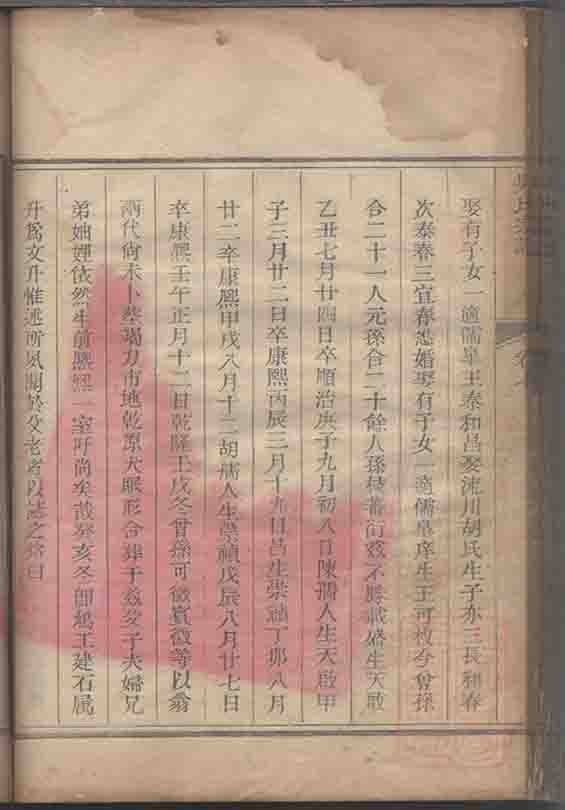 娶有子女一適儒皐王泰和昌娶流川胡氏生子亦三長和春
次泰春三宜春悉婚娶有子女一適儒皐庠生王可枚今曾孫
合二十一人元孫合二十餘人孫蕃衍玆不勝載婚生天啟
乙丑七月廿四日卒順治庚子九月初八日陳孺人生天啟甲
子三月廿二日卒康熙丙辰三月十九日昌生崇禎丁卯八月
廿二卒康熙甲戌八月十二胡孺人生崇禎戊辰八月廿七日
卒康熙壬午正月十二日乾隆壬戌冬曾孫可徵賓徵等以翁
兩代尚未卜葬竭力市地乾原犬眠形合葬于玆父子夫婦兄
弟妯娌依然生前熙熙一室吁尚矣哉癸亥冬卽塟工建石屬
升為文升惟述所夙聞於父老者以誌之銘曰